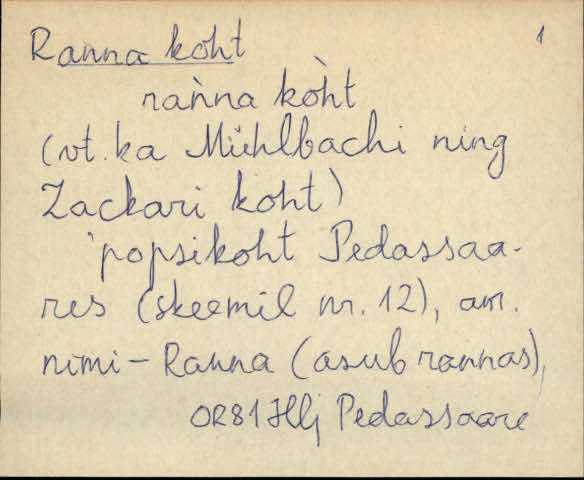 Ranna koht 1
ràǹna kòht
(vt. ka Mühlbachi ning
Zackari koht)
'popsikoht Pedassaa-
res (skeemil nr. 12), am.
nimi - Ranna (asub rannas),
OR81 Hlj Pedassaare